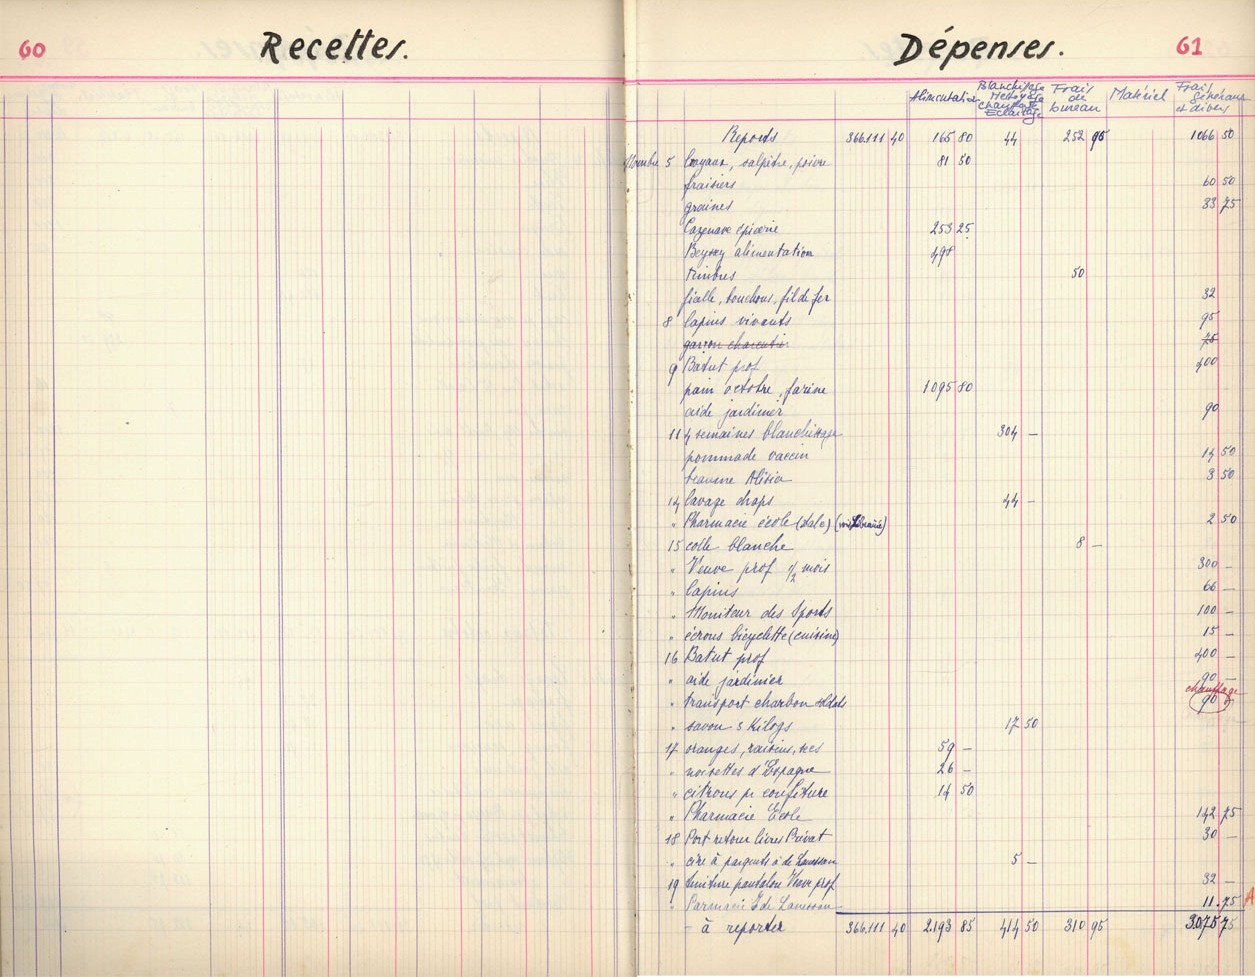 60
Recettes.
Dépenses.
61
Alimentation Blanchissage Nettoyage chauffage Eclairage Frais de bureau Matériel Frais généraux et divers
Reports 366.111 40 165 80 44 252 95 1066 50
Novembre 5 boyaux, salpêtre, poivre 81 50
fraisiers 60 50
graines 33 75
Cazenave épicerie 253 25
Beyssey alimentation 498
timbres 50
fielle, bouchons, fil de fer 32
8 lapins vivants 95
garçon charcutier 75
9 Batut prof 400
pain octobre, farine 1095 80
aide jardinier 90
11 4 semaines blanchissage 304 –
pommade vaccin 14 50
beaume Alisia 3 50
14 lavage draps 44 –
" Pharmacie école (Sale) 2 50
15 colle blanche 8 –
" Veuve prof 1/2 mois 300 –
" lapins 66 –
" Moniteur des Sports 100 –
" écrous bicyclette (cuisine) 15 –
16 Batut prof 400 –
" aide jardinier 90 –
chauffage
" transport charbon soldats 90 –
" savon 3 Kilogs 17 50
17 oranges, raisins, secs 59 –
" noisettes d'Espagne 26 –
" citrons pr confiture 14 50
" Pharmacie Ecole 142 75
18 Port retour livres Privat 30 –
" cire à parquets à de Lanessan 5 –
19 teinture pantalon Veuve prof 32 –
" Parmacie E. de Lanessan 11.75 A
– à reporter 366.111 40 2.193 85 414 50 310 95 3.075 75